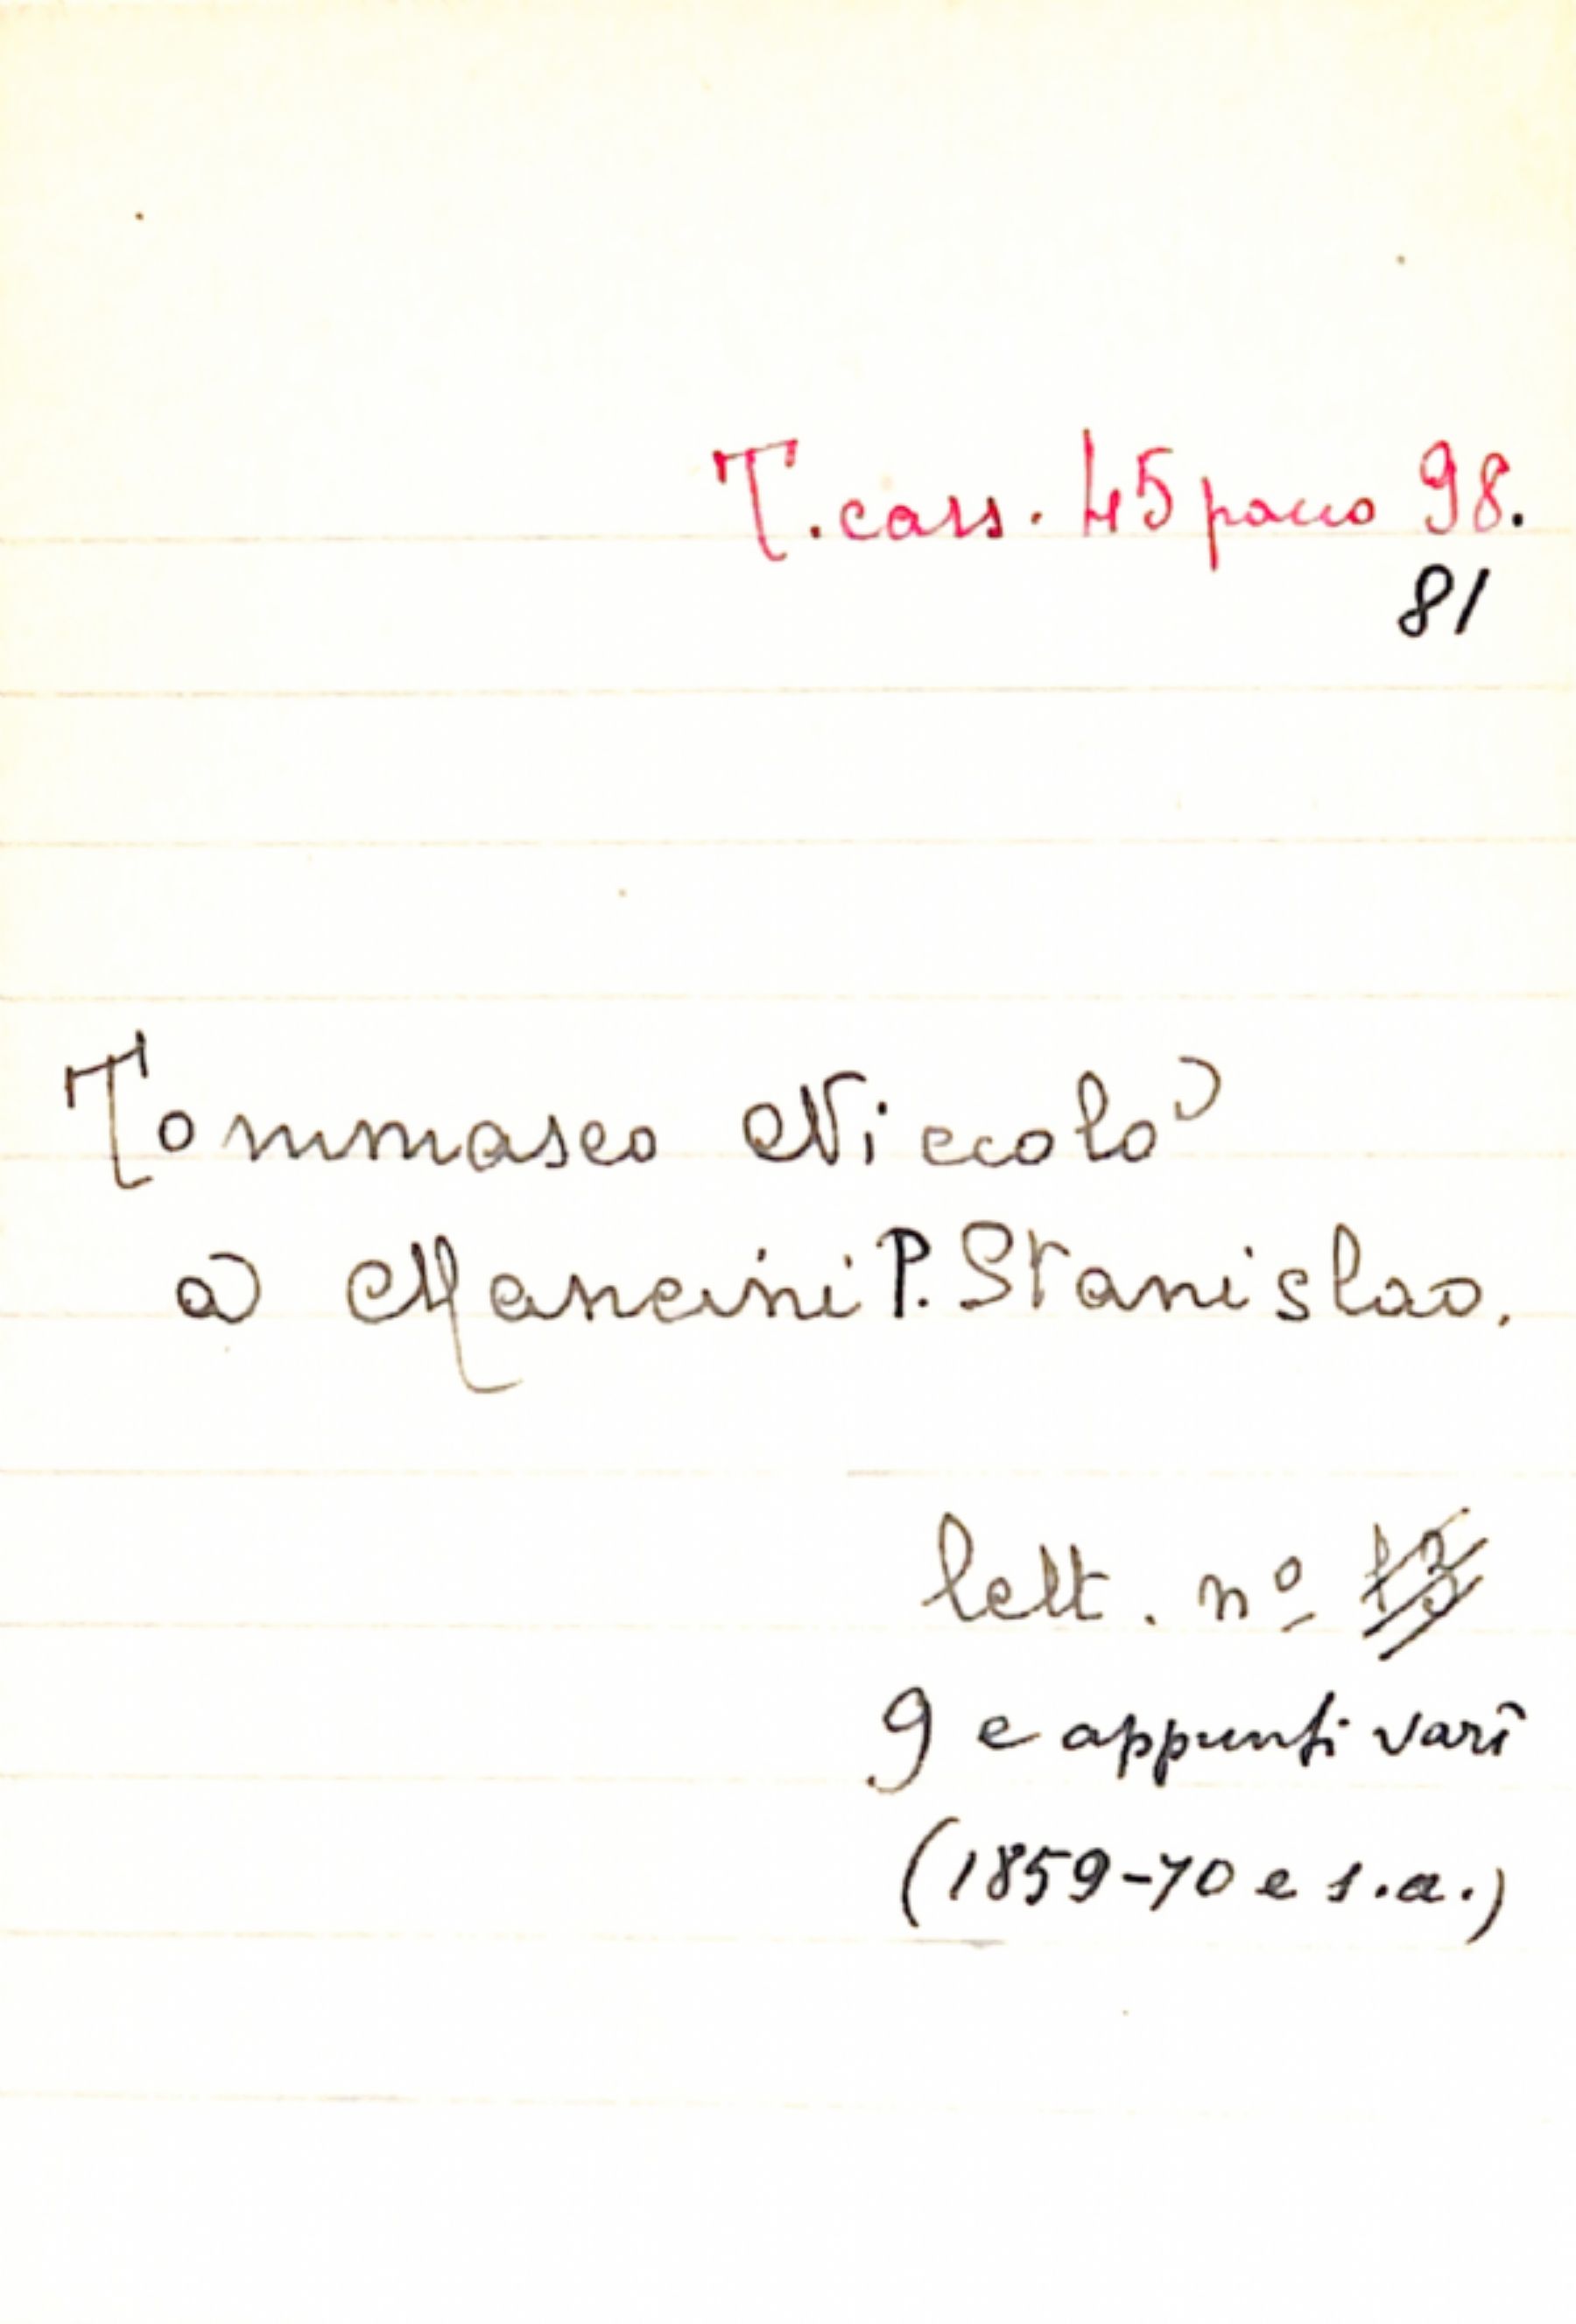 T. cass. 45 pacco 98.
81
Tommaseo Niccolò
a Mancini P. Stanislao.
lett. nº 13
9 e appunti varî
(1859-70 e s.a.)